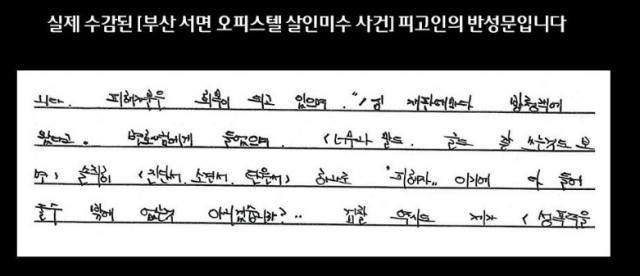 실제 수감된 [부산 서면 오피스텔 살인미수 사건] 피고인의 반성문입니다
니다. 피해자분은 회복이 되고 있으며, "1심 재판때마다 방청객에
왔다고. 변호사님에게 들었으며. <너무나 말도. 글도 잘 쓰는것도 보
면> 솔직히 <진단서. 소견서. 탄원서> 하나로 "피해자" 이기에 다 들어
줄수 밖에 없는것 아니겠습니까?.. 검찰 역시도 제가 <성폭주을